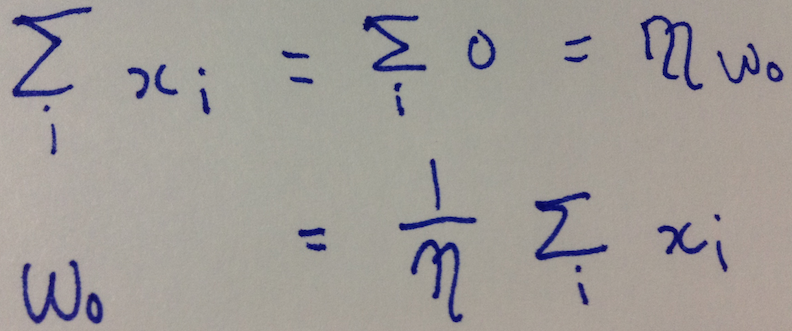 ∑_i x_i = ∑_i 0 = η w_0
w_0 = 1/η ∑_i x_i